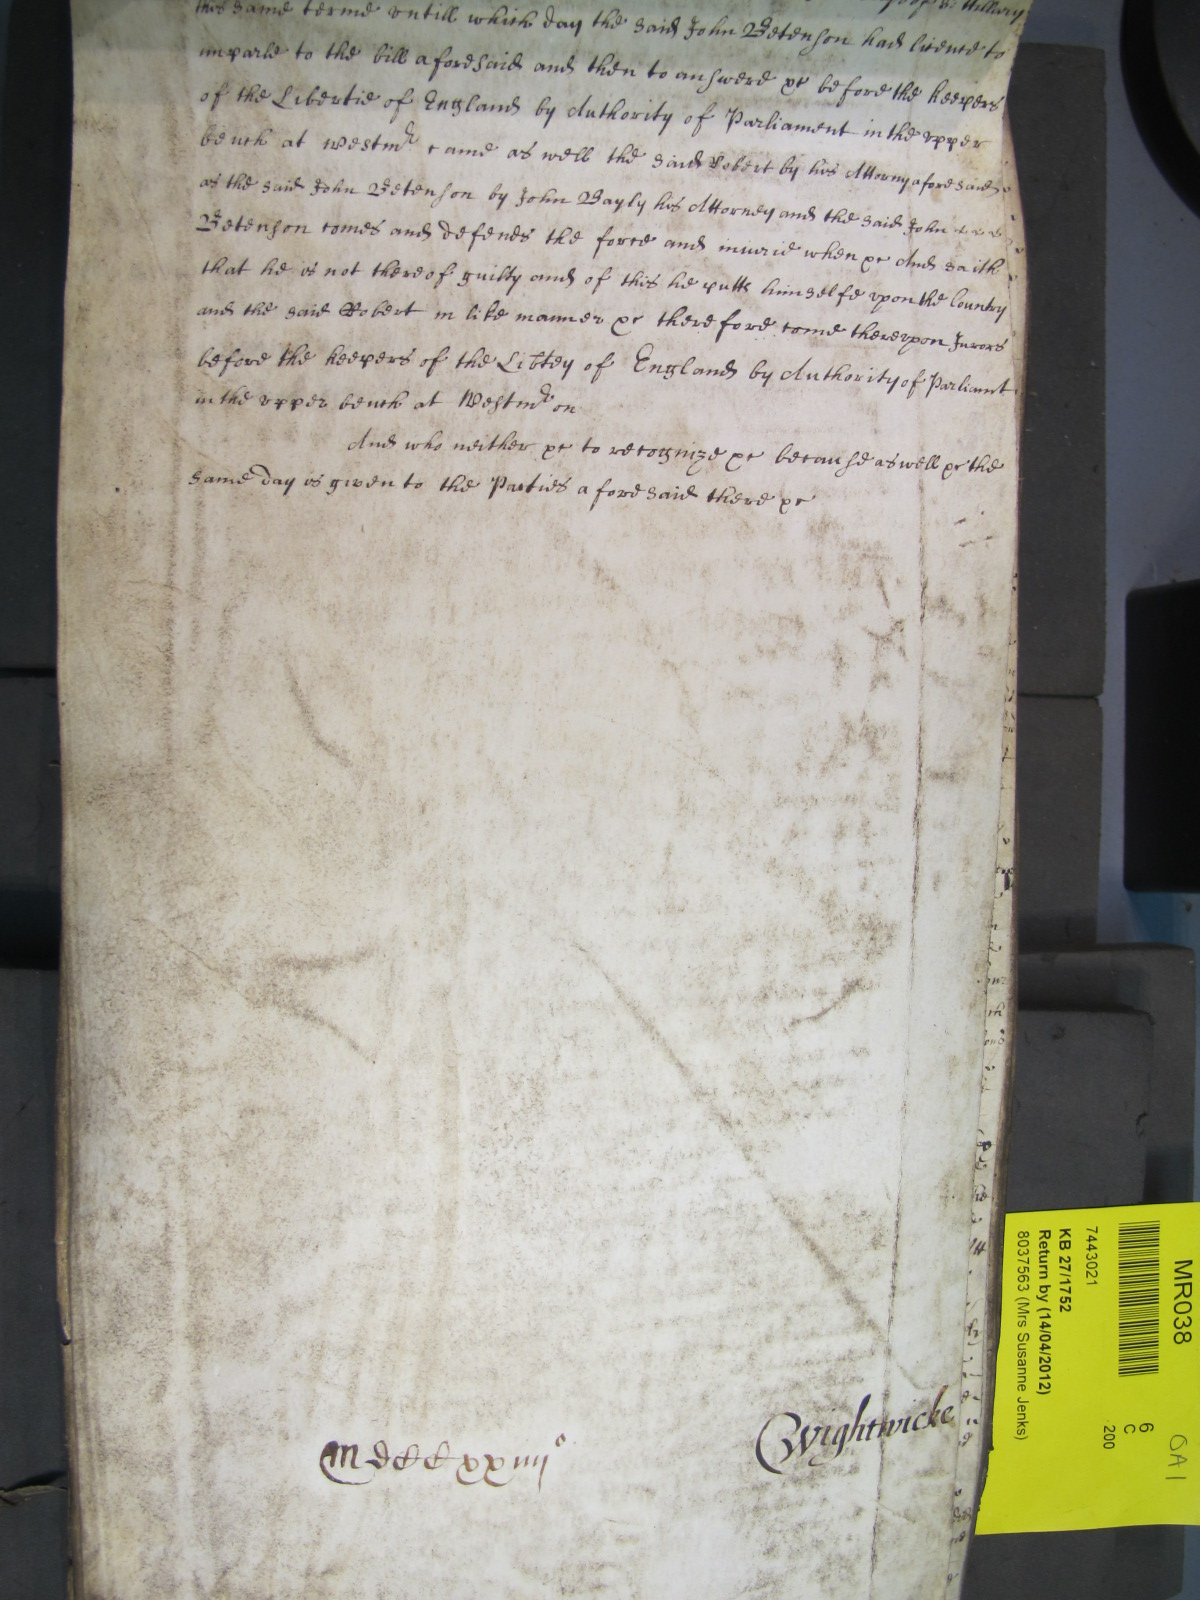 this same terme untill which day the said John Betenson had licence to
imparle to the bill aforesaid and then to answere &c before the keepers
of the Libertie of England by Authority of Parliament in the upper
bench at Westmr came as well the said Robert by his Attorny aforesaid
as the said John Betenson by John Bayly his Attorney and the said John
Betenson comes and defends the force and iniurie when &c And saith
that he is not thereof guilty and of this he putts himselfe upon the Country
and the said Robert in like manner &c therefore come thereupon Jurors
before the keepers of the Libtey of England by Authority of Parliamt
in the upper bench at Westmr on
And who neither &c to recognize &c because aswell &c the
same day is given to the Parties aforesaid there &c
Mdccc xxiiijo
Wightwicke
MR038
7443021
KB 27/1752
Return by (14/04/2012)
8037563 (Mrs Susanne Jenks)
6
C
200
OA1